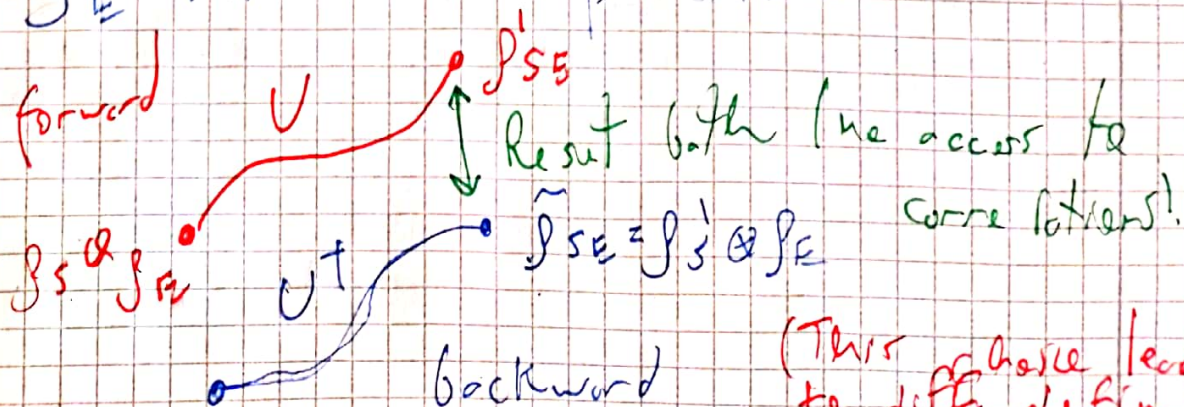 E
forward
U
ρ'SE
Reset bath (no access to
correlations!
ρS ⊗ ρE
U†
ρ̃SE = ρ'S ⊗ ρE
backward
(This choice lea
to diff defin